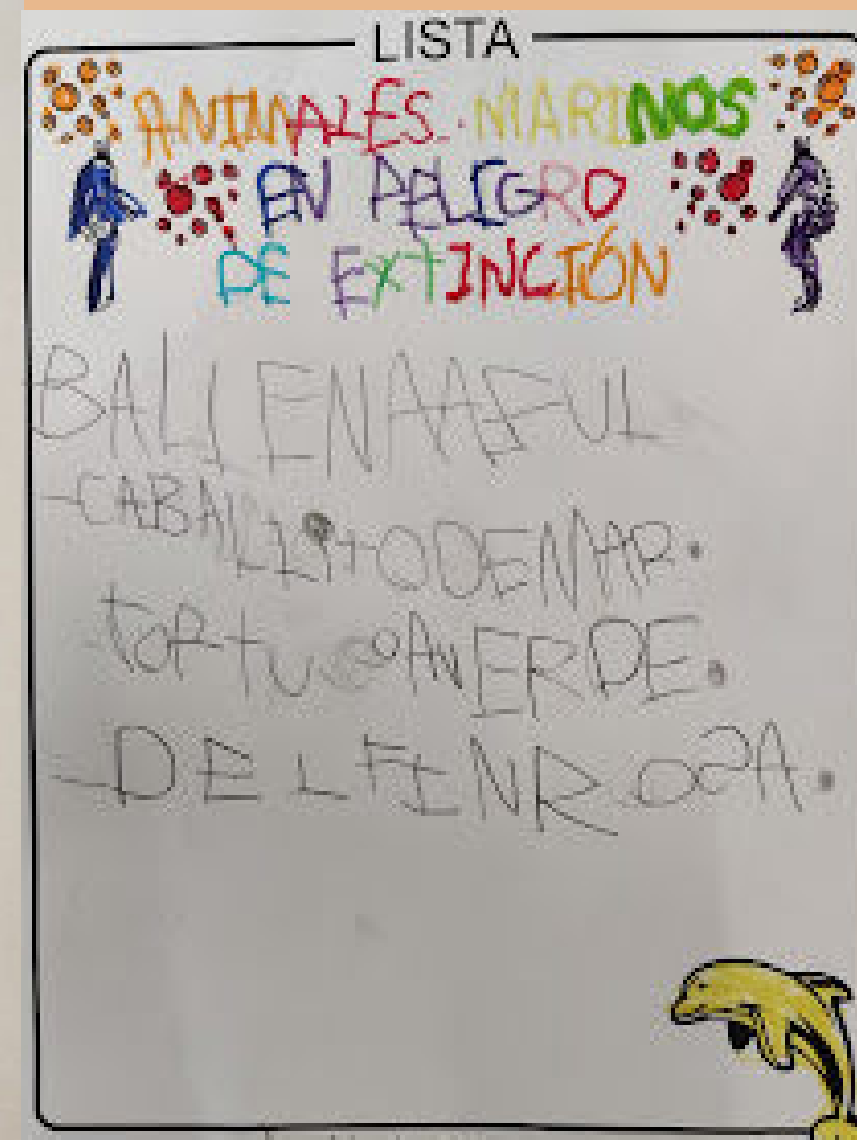 LISTA
ANIMALES MARINOS
EN PELIGRO
DE EXTINCIÓN
BALLENA AZUL
-CABALLITO DE MAR.
tORtUGA VERDE.
-DELFIN ROSA.